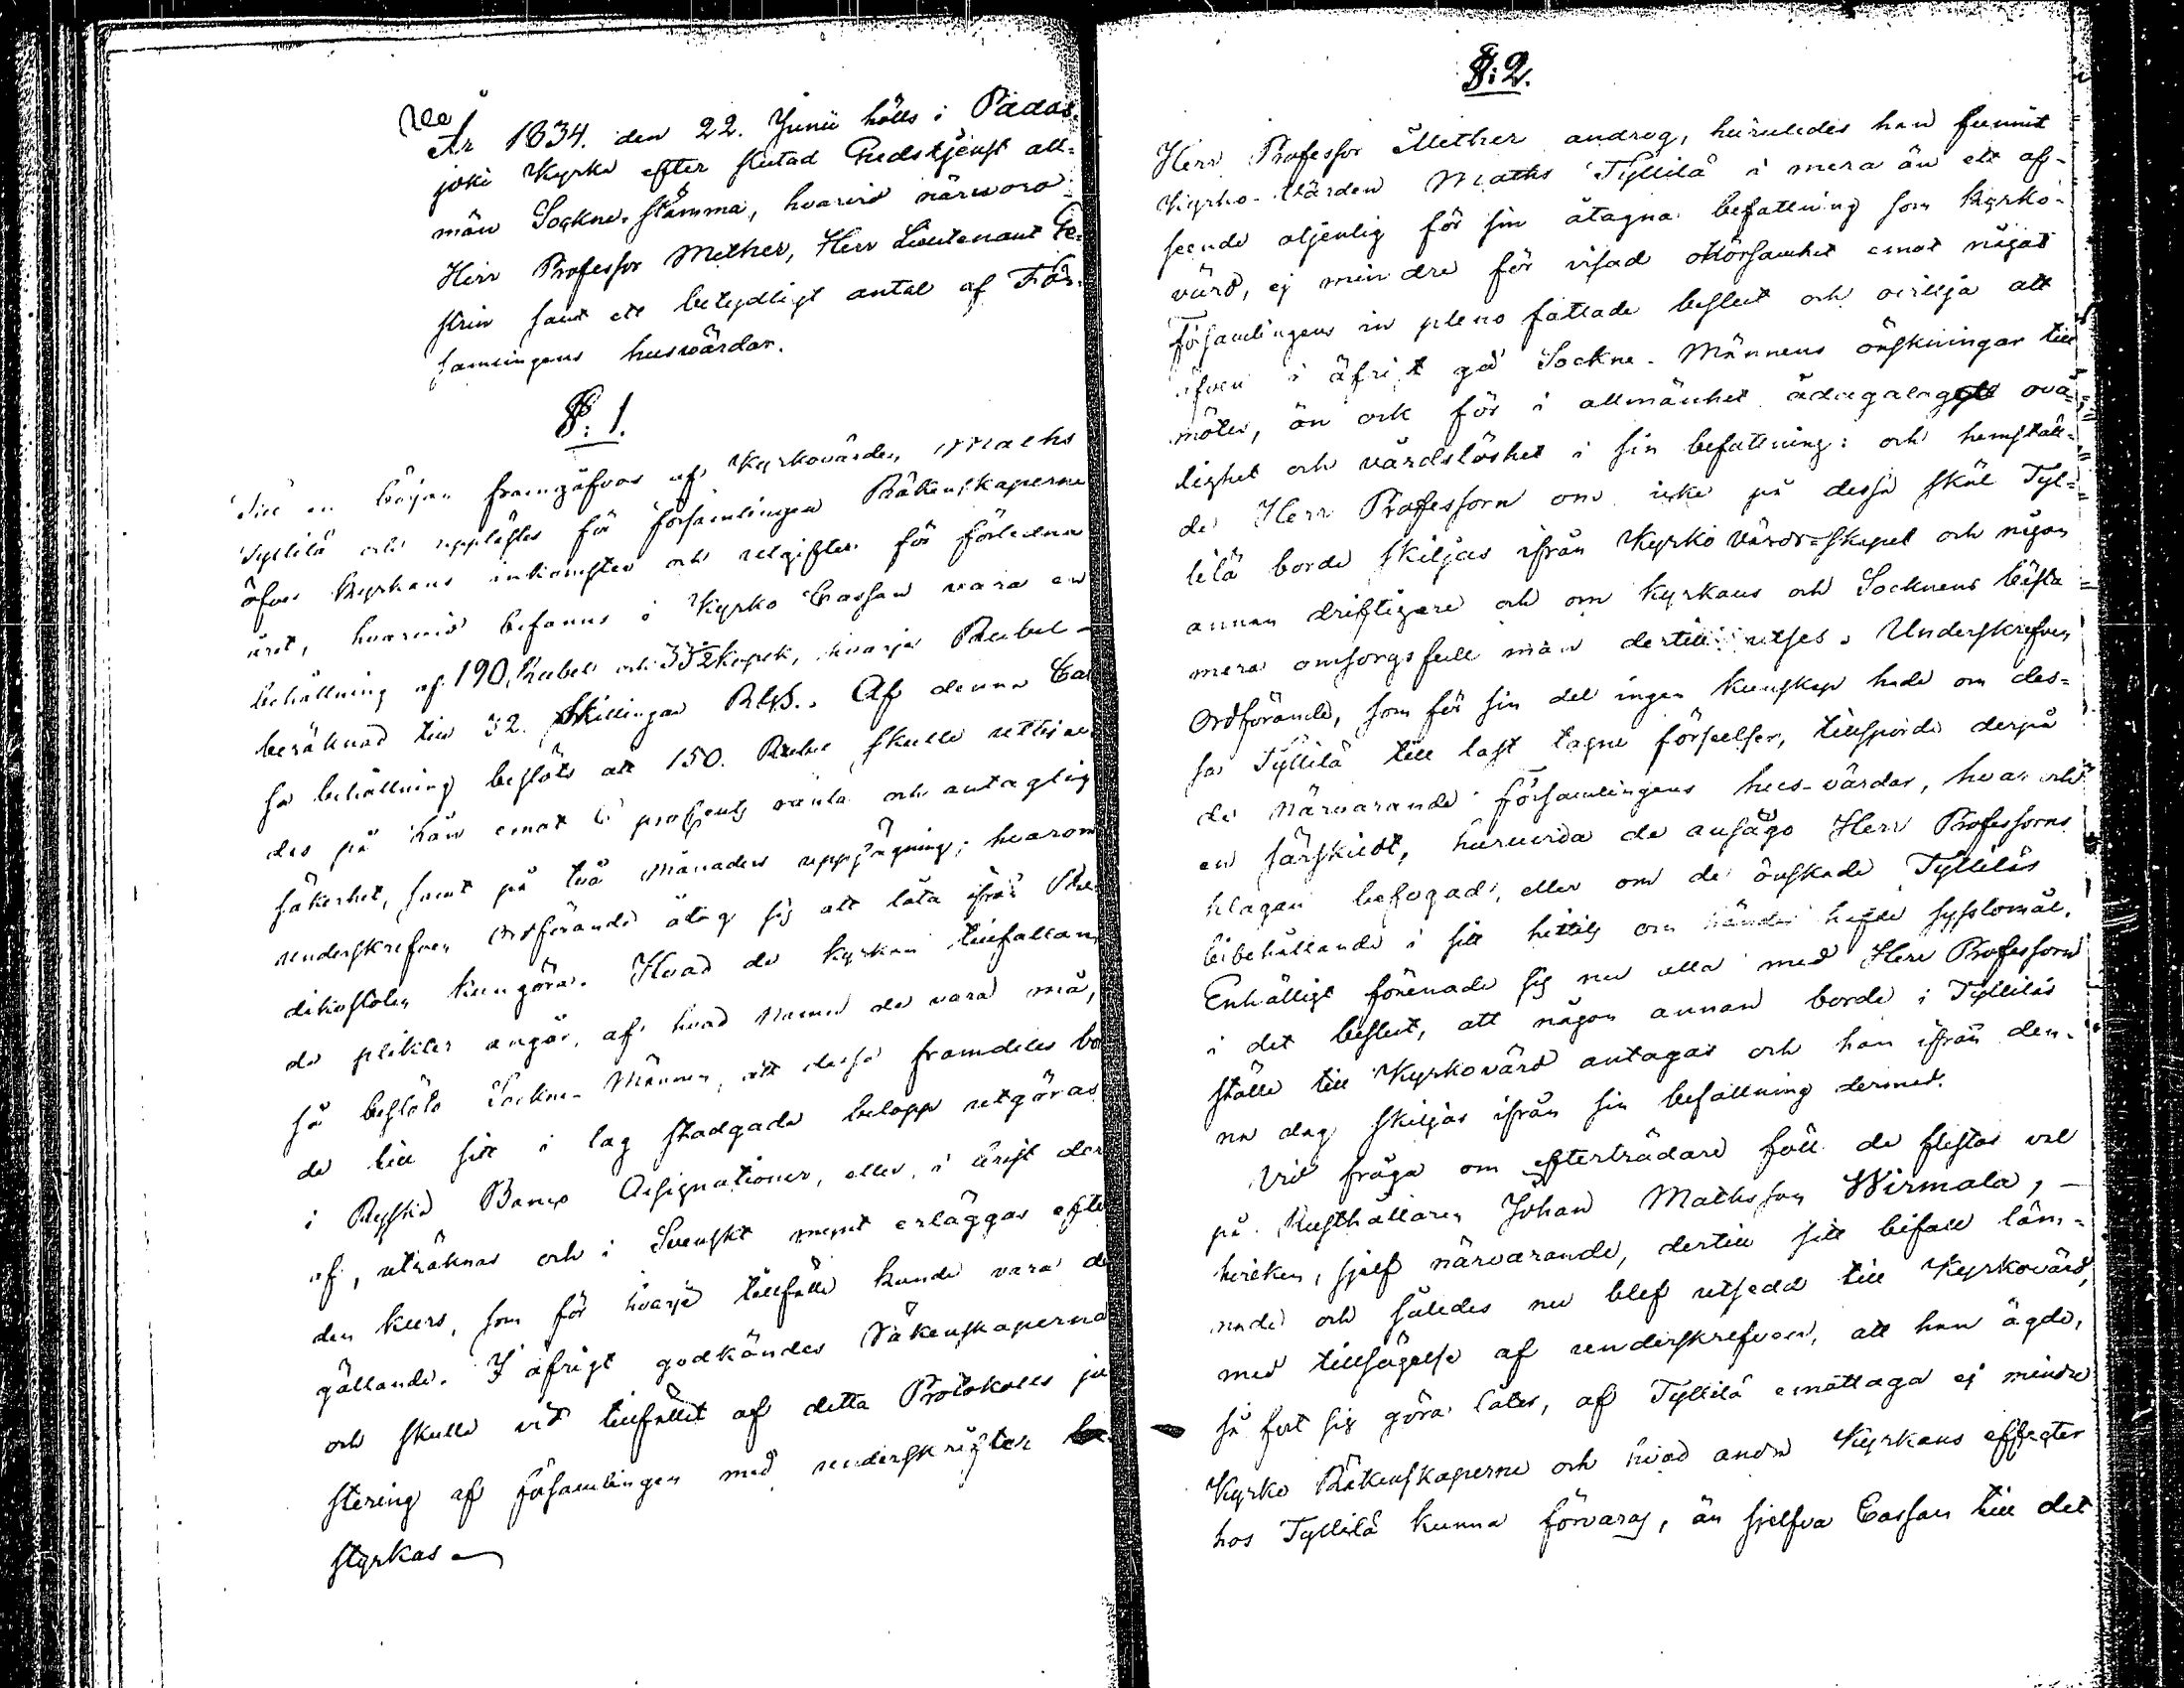 År 1834. den 22. Junii hölls i Padas-
joki Kyrka efter slutad Gudstjenst all=
män Sockne-stämma, hvarvid närvoro
Herr Professor Mether, Herr Lieutenant Ge-
strin samt ett betydligt antal af För-
samlingens husvärdar.
§. 1.
Till en början framgåfvos af Kyrkovärden Maths
Tyllilä och upplästes för församlingen Räkenskaperne
öfver Kyrkans inkomster och utgifter för förledna
året, hvarvid befanns i Kyrko Cassan vara en
behållning af 190 Rubel och 33½ Kopek, hvarje Rubel
beräknad till 32. Skillingar RGS. Af denna Cas
sa behållning beslöts att 150. Rubel skulle utlåna
des på lån emot 6 procents ränta och antaglig
säkerhet, samt på två Månaders uppsägning; hvarom
underskrefven Ordförande åtog sig att låta ifrån Pre
dikostolen kungöra. Hvad de kyrkan tillfallan
de plikter angår, af hvad Namn de vara må,
så beslöto Sockne-Männen, att dessa framdeles bor
de till sitt i lag stadgade belopp utgöras
i Ryska Banco Assignationer, eller, i brist der
af, uträknas och i Svenskt mynt erläggas efter
den kurs, som för hvarje tillfälle kunde vara
gällande. I öfrigt godkändes Räkenskaperna
och skulle vid tillfället af detta Protokolls ju
stering af församlingen med underskrifter be-
styrkas
§: 2.
Herr Professor Mether androg, huruledes han funnit
Kyrko-Värden Maths Tyllilä i mera än ett af-
seende otjenlig för sin åtagna befattning som kyrko-
värd, ej mindre för visad ohörsamhet emot något
Församlingens in pleno fattade beslut och ovilja att
äfven i öfrigt gå Sockne-Männens önskningar till
mötes, än ock för i allmänhet ådagalagd ova-
lighet och vårdslöshet i sin befattning: och hemstäl=
de Herr Professorn om icke på dessa skäl Tyl=
lilä borde skiljas ifrån Kyrko Värds=skapet och någon
annan driftigare och om Kyrkans och Socknens bästa
mera omsorgsfull man dertill utses. Underskrefven
Ordförande, som för sin del ingen kunskap hade om des=
sa Tyllilä till last lagne förseelser, tillsporde derpå
de närvarande församlingens hus-värdar, hvar och
en särskildt, huruvida de ansågo Herr Professorns
klagan befogad, eller om de önskade Tylliläs
bibehållande i sitt hittills om händer hafde sysslomål.
Enhälligt förenade sig nu alla med Herr Professorn
i det beslut, att någon annan borde i Tylliläs
ställe till Kyrkovärd antagas och han ifrån den-
na dag skiljas ifrån sin befattning dermed.
Vid fråga om efterträdare föll de flestas val
på Rusthållaren Johan Mathsson Wirmala, –
hvilken, sjelf närvarande, dertill sitt bifall läm=
nade och således nu blef utsedd till Kyrkovärd,
med tillsägelse af underskrefven, att han ägde,
så fort sig göra låter, af Tyllilä emottaga ej mindre
Kyrko Räkenskaperne och hvad andra Kyrkans effecter
hos Tyllilä kunna förvaras, än sjelfva Cassan till det